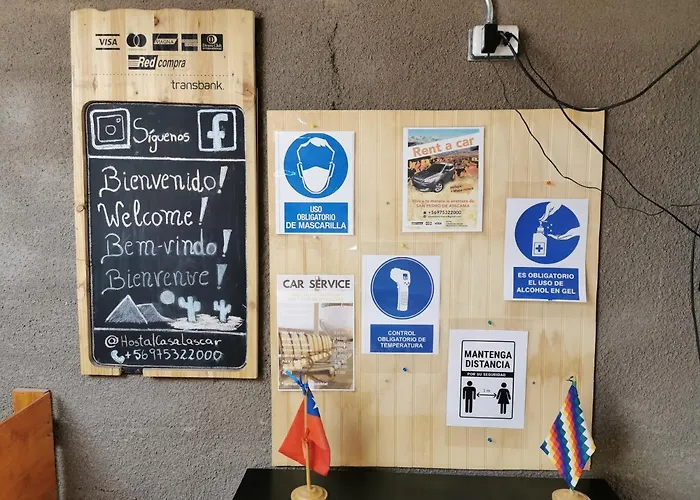 VISA
Red compra
transbank.
Síguenos
f
Bienvenido!
Welcome!
Bem-vindo!
Bienvenue!
@HostalCasaLascar
+56975322000
USO
OBLIGATORIO
DE MASCARILLA
Rent a car
SAN PEDRO DE ATACAMA
+56975322000
ES OBLIGATORIO
EL USO DE
ALCOHOL EN GEL
CAR SERVICE
CONTROL
OBLIGATORIO DE
TEMPERATURA
MANTENGA
DISTANCIA
POR SU SEGURIDAD